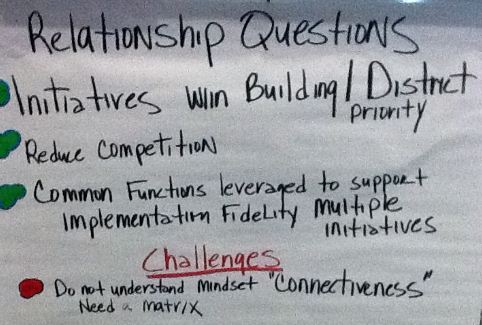 Relationship Questions
Initiatives w/in Building / District
priority
Reduce Competition
Common Functions leveraged to support
Implementation Fidelity multiple
initiatives
Challenges
Do not understand mindset "Connectiveness"
Need a matrix